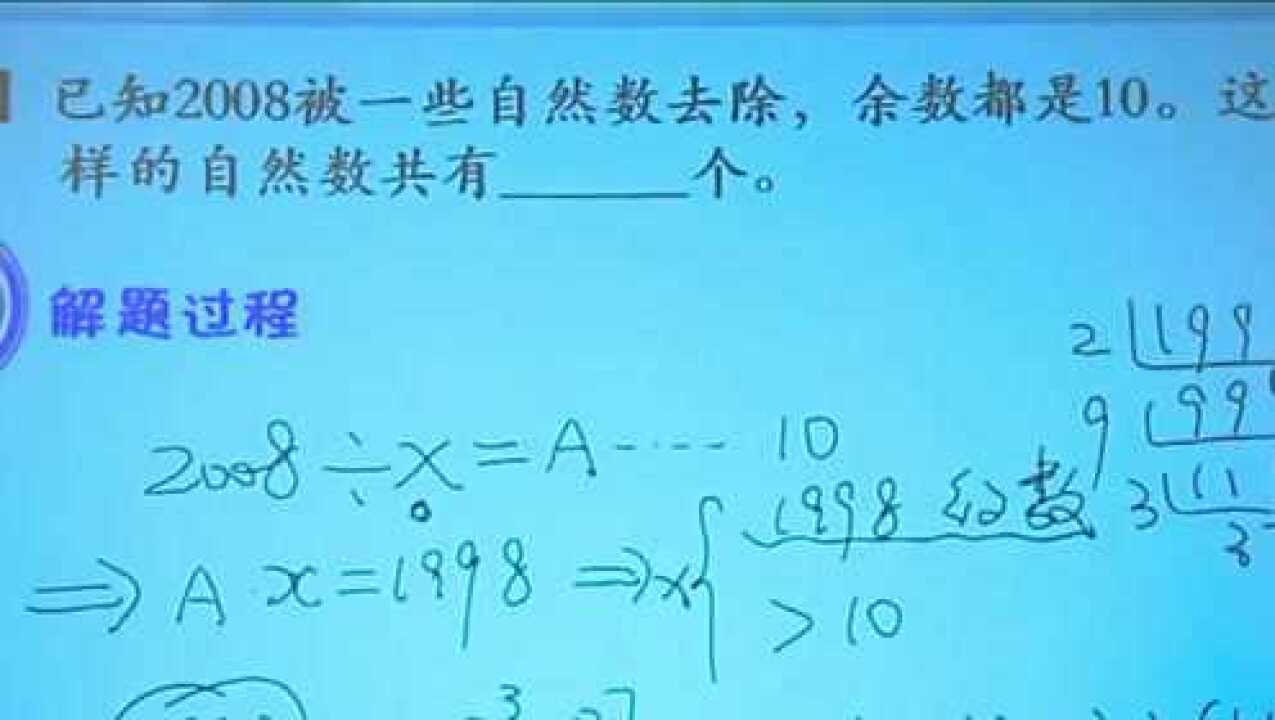 已知2008被一些自然数去除，余数都是10。这
样的自然数共有______个。
解题过程
2008÷x=A····10
⇒A·x=1998⇒x{
1998约数
>10
2 199
9 99
3 11
3
3 27